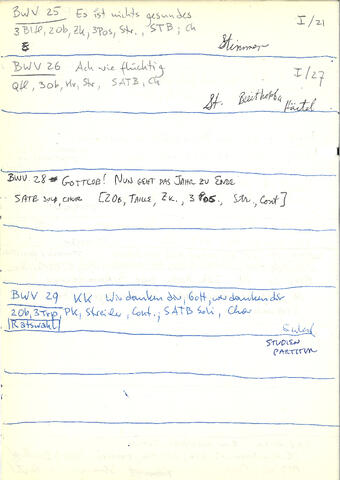 BWV 25 Es ist nichts gesundes I/21
3 Blfl, 2 Ob, Zk, 3 Pos, Str., STB; Ch
Stimmen
BWV 26 Ach wie flüchtig I/27
Qfl, 3 Ob, Hr, Str, SATB, Ch
St. Breitkopf Härtel
BWV 28 GOTTLOB! NUN GEHT DAS JAHR ZU ENDE
SATB SOLO, CHOR [2 OB, TAILLE, ZK., 3 POS., Str., Cont]
BWV 29 KK Wir danken dir, Gott, wir danken dir
2 Ob, 3 Trp, PK, Streicher, Cont.; SATB Soli, Chor
Ratswahl
STUDIEN
PARTITUR